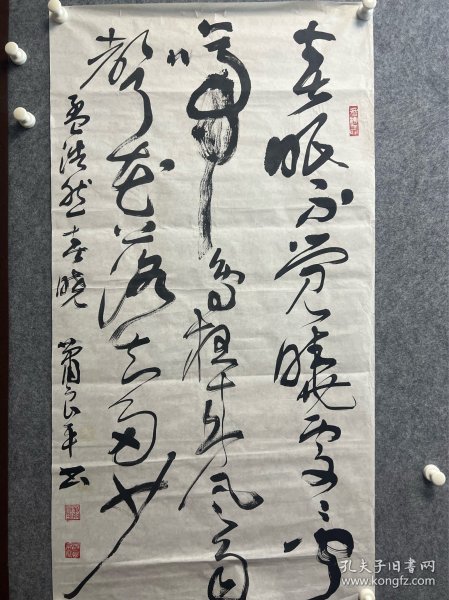 春眠不觉晓处々闻
啼鸟夜来风雨
声花落知多少
孟浩然春晓 萧良平书
孔夫子旧书网
www.kongfz.com